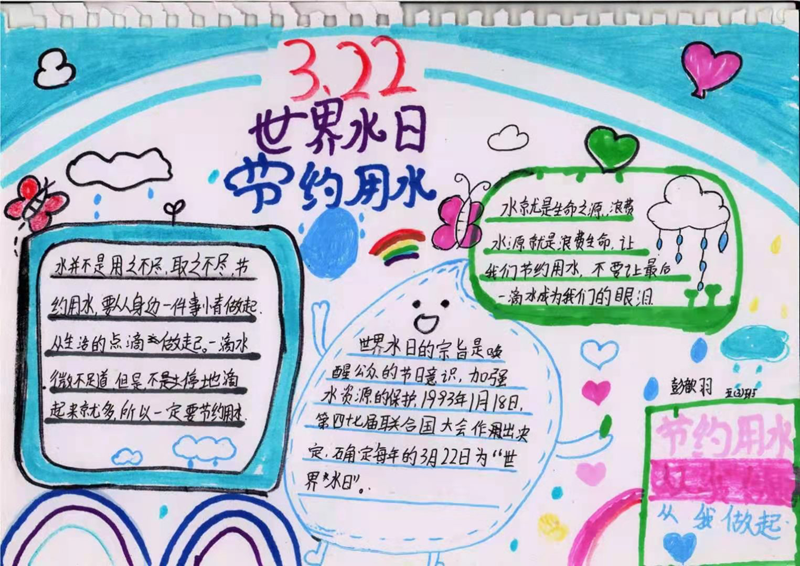 3.22
世界水日
节约用水
水并不是用之不尽,取之不尽,节
约用水,要从身边一件事小者做起.
从生活的点滴做起。一滴水
微不足道但是不停地滴
起来就多,所以一定要节约用水
水就是生命之源,浪费
水源就是浪费生命,让
我们节约用水,不要让最后
一滴水成为我们的眼泪
世界水日的宗旨是唤
醒公众的节日意识,加强
水资源的保护,1993年1月18日,
第四七届联合国大会作用出决
定,确定每年的3月22日为“世
界水日”。
彭敏羽
节约用水
从我做起